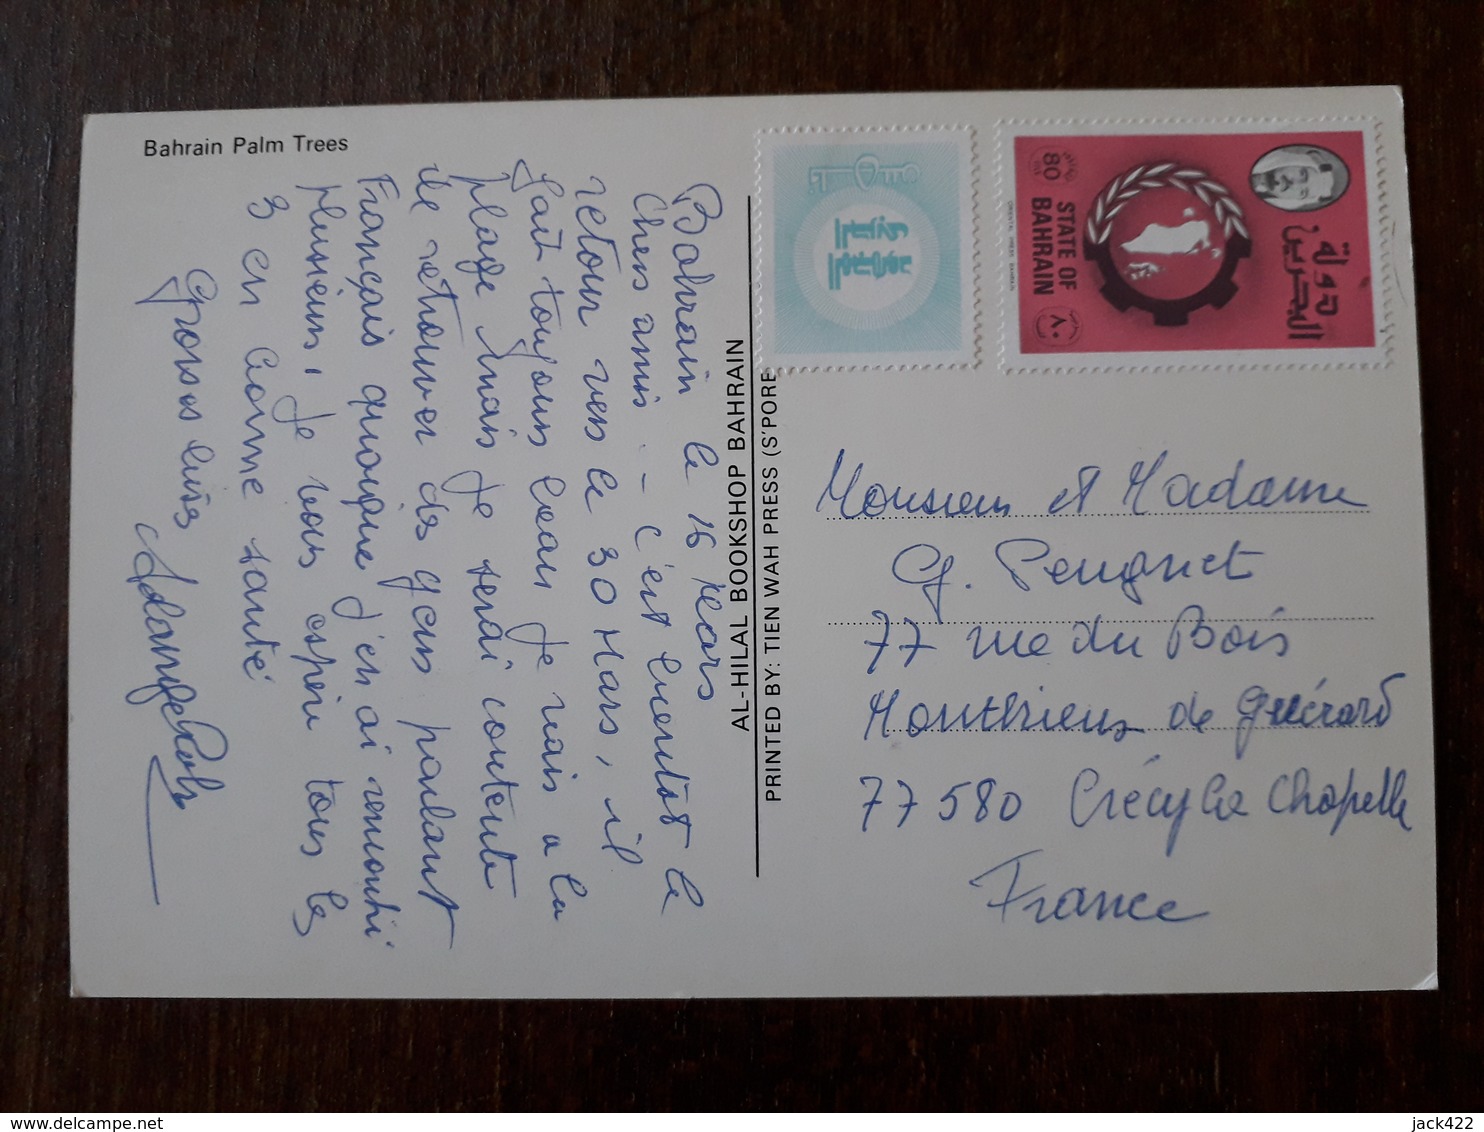 Bahrain Palm Trees
Bahrain le 16 Mars
Chers amis - c'est bientôt le
retour vers le 30 Mars, il
fait toujours beau je vais a la
plage mais je serai contente
de retrouver des gens parlant
Français quoique j'en ai rencontré
plusieurs, je vous espère tous les
3 en bonne santé
Grosses bises
AL-HILAL BOOKSHOP BAHRAIN
PRINTED BY: TIEN WAH PRESS (S'PORE
80
STATE OF
BAHRAIN
ORIENTAL PRESS BAHRAIN
دولة
البحرين
٨٠
Monsieur et Madame
G. Peugniet
77 rue du Bois
Monthérieux de Guérard
77580 Crécy la Chapelle
France
delcampe.net
jack422